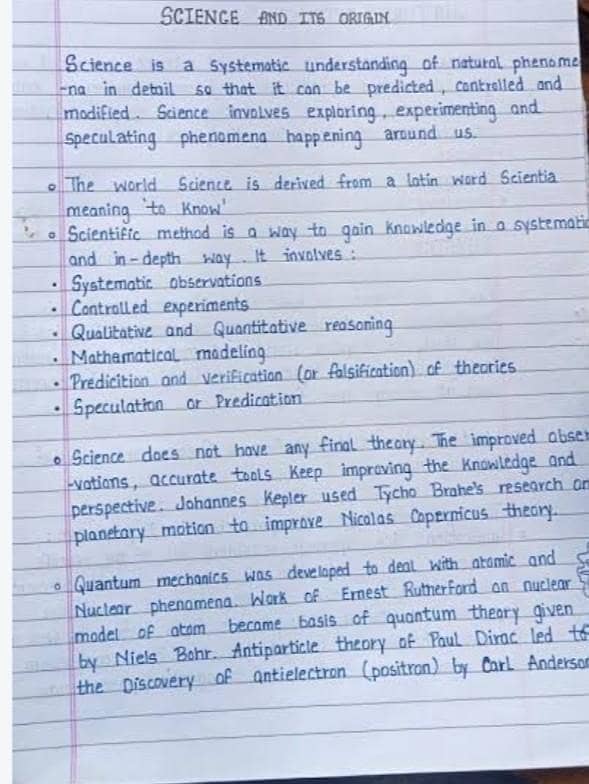 SCIENCE AND ITS ORIGIN
Science is a systematic understanding of natural phenome
-na in detail so that it can be predicted, controlled and
modified. Science involves exploring, experimenting and
speculating phenomena happening around us.
The world Science is derived from a latin word Scientia
meaning 'to Know'
Scientific method is a way to gain Knowledge in a systematic
and in-depth way. It involves :
Systematic observations
Controlled experiments
Qualitative and Quantitative reasoning
Mathematical modeling
Predicition and verification (or falsification) of theories
Speculation or Predication
Science does not have any final theory. The improved obser
-vations, accurate tools Keep improving the Knowledge and
perspective. Johannes Kepler used Tycho Brahe's research on
planetary motion to improve Nicolas Copernicus theory.
Quantum mechanics was developed to deal with atomic and
Nuclear phenomena. Work of Ernest Rutherford on nuclear
model of atom became basis of quantum theory given
by Niels Bohr. Antiparticle theory of Paul Dirac led to
the Discovery of antielectron (positron) by Carl Anderson